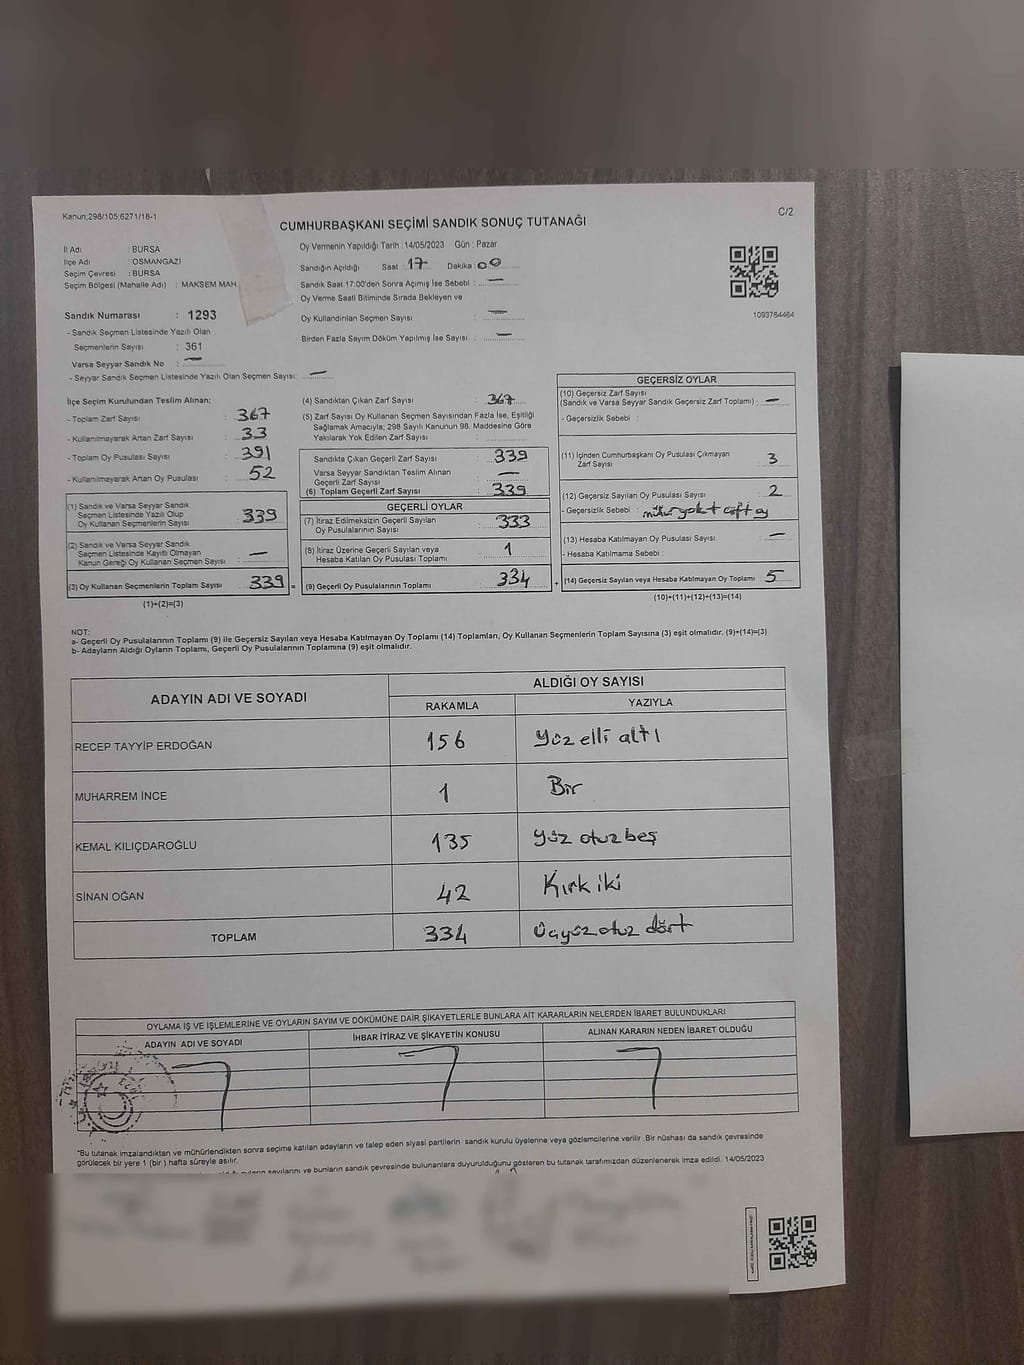 Kanun;298/105;6271/18-1
C/2
CUMHURBAŞKANI SEÇİMİ SANDIK SONUÇ TUTANAĞI
İl Adı : BURSA
İlçe Adı : OSMANGAZİ
Seçim Çevresi : BURSA
Seçim Bölgesi (Mahalle Adı) : MAKSEM MAH.
Oy Vermenin Yapıldığı Tarih : 14/05/2023 Gün : Pazar
Sandığın Açıldığı Saat : 17 Dakika : 00
Sandık Saat 17:00'den Sonra Açılmış İse Sebebi : —
Oy Verme Saati Bitiminde Sırada Bekleyen ve
Oy Kullandırılan Seçmen Sayısı : —
Birden Fazla Sayım Döküm Yapılmış İse Sayısı : —
1093764464
Sandık Numarası : 1293
- Sandık Seçmen Listesinde Yazılı Olan
Seçmenlerin Sayısı : 361
Varsa Seyyar Sandık No : —
- Seyyar Sandık Seçmen Listesinde Yazılı Olan Seçmen Sayısı: —
İlçe Seçim Kurulundan Teslim Alınan;
- Toplam Zarf Sayısı : 367
- Kullanılmayarak Artan Zarf Sayısı : 33
- Toplam Oy Pusulası Sayısı : 391
- Kullanılmayarak Artan Oy Pusulası Sayısı : 52
(1) Sandık ve Varsa Seyyar Sandık
Seçmen Listesinde Yazılı Olup
Oy Kullanan Seçmenlerin Sayısı : 339
(2) Sandık ve Varsa Seyyar Sandık
Seçmen Listesinde Kayıtlı Olmayan
Kanun Gereği Oy Kullanan Seçmen Sayısı : —
(3) Oy Kullanan Seçmenlerin Toplam Sayısı : 339 =
(1)+(2)=(3)
(4) Sandıktan Çıkan Zarf Sayısı : 367
(5) Zarf Sayısı Oy Kullanan Seçmen Sayısından Fazla İse, Eşitliği
Sağlamak Amacıyla; 298 Sayılı Kanunun 98. Maddesine Göre
Yakılarak Yok Edilen Zarf Sayısı :
Sandıkta Çıkan Geçerli Zarf Sayısı : 339
Varsa Seyyar Sandıktan Teslim Alınan
Geçerli Zarf Sayısı : —
(6) Toplam Geçerli Zarf Sayısı : 339
GEÇERLİ OYLAR
(7) İtiraz Edilmeksizin Geçerli Sayılan
Oy Pusulalarının Sayısı : 333
(8) İtiraz Üzerine Geçerli Sayılan veya
Hesaba Katılan Oy Pusulası Toplamı : 1
(9) Geçerli Oy Pusulalarının Toplamı : 334 +
GEÇERSİZ OYLAR
(10) Geçersiz Zarf Sayısı
(Sandık ve Varsa Seyyar Sandık Geçersiz Zarf Toplamı) : —
- Geçersizlik Sebebi :
(11) İçinden Cumhurbaşkanı Oy Pusulası Çıkmayan
Zarf Sayısı : 3
(12) Geçersiz Sayılan Oy Pusulası Sayısı : 2
- Geçersizlik Sebebi : mühür yok + çift oy
(13) Hesaba Katılmayan Oy Pusulası Sayısı : —
- Hesaba Katılmama Sebebi :
(14) Geçersiz Sayılan veya Hesaba Katılmayan Oy Toplamı : 5
(10)+(11)+(12)+(13)=(14)
NOT:
a- Geçerli Oy Pusulalarının Toplamı (9) ile Geçersiz Sayılan veya Hesaba Katılmayan Oy Toplamı (14) Toplamları, Oy Kullanan Seçmenlerin Toplam Sayısına (3) eşit olmalıdır. (9)+(14)=(3)
b- Adayların Aldığı Oyların Toplamı, Geçerli Oy Pusulalarının Toplamına (9) eşit olmalıdır.
ADAYIN ADI VE SOYADI
ALDIĞI OY SAYISI
RAKAMLA YAZIYLA
RECEP TAYYİP ERDOĞAN 156 Yüz elli altı
MUHARREM İNCE 1 Bir
KEMAL KILIÇDAROĞLU 135 Yüz otuz beş
SİNAN OĞAN 42 Kırk iki
TOPLAM 334 Üçyüz otuz dört
OYLAMA İŞ VE İŞLEMLERİNE VE OYLARIN SAYIM VE DÖKÜMÜNE DAİR ŞİKAYETLERLE BUNLARA AİT KARARLARIN NELERDEN İBARET BULUNDUKLARI
ADAYIN ADI VE SOYADI İHBAR İTİRAZ VE ŞİKAYETİN KONUSU ALINAN KARARIN NEDEN İBARET OLDUĞU
"Bu tutanak imzalandıktan ve mühürlendikten sonra seçime katılan adayların ve talep eden siyasi partilerin sandık kurulu üyelerine veya gözlemcilerine verilir. Bir nüshası da sandık çevresinde
görülecek bir yere 1 (bir) hafta süreyle asılır.
sayılarını ve bunların sandık çevresinde bulunanlara duyurulduğunu gösteren bu tutanak tarafımızdan düzenlenerek imza edildi. 14/05/2023